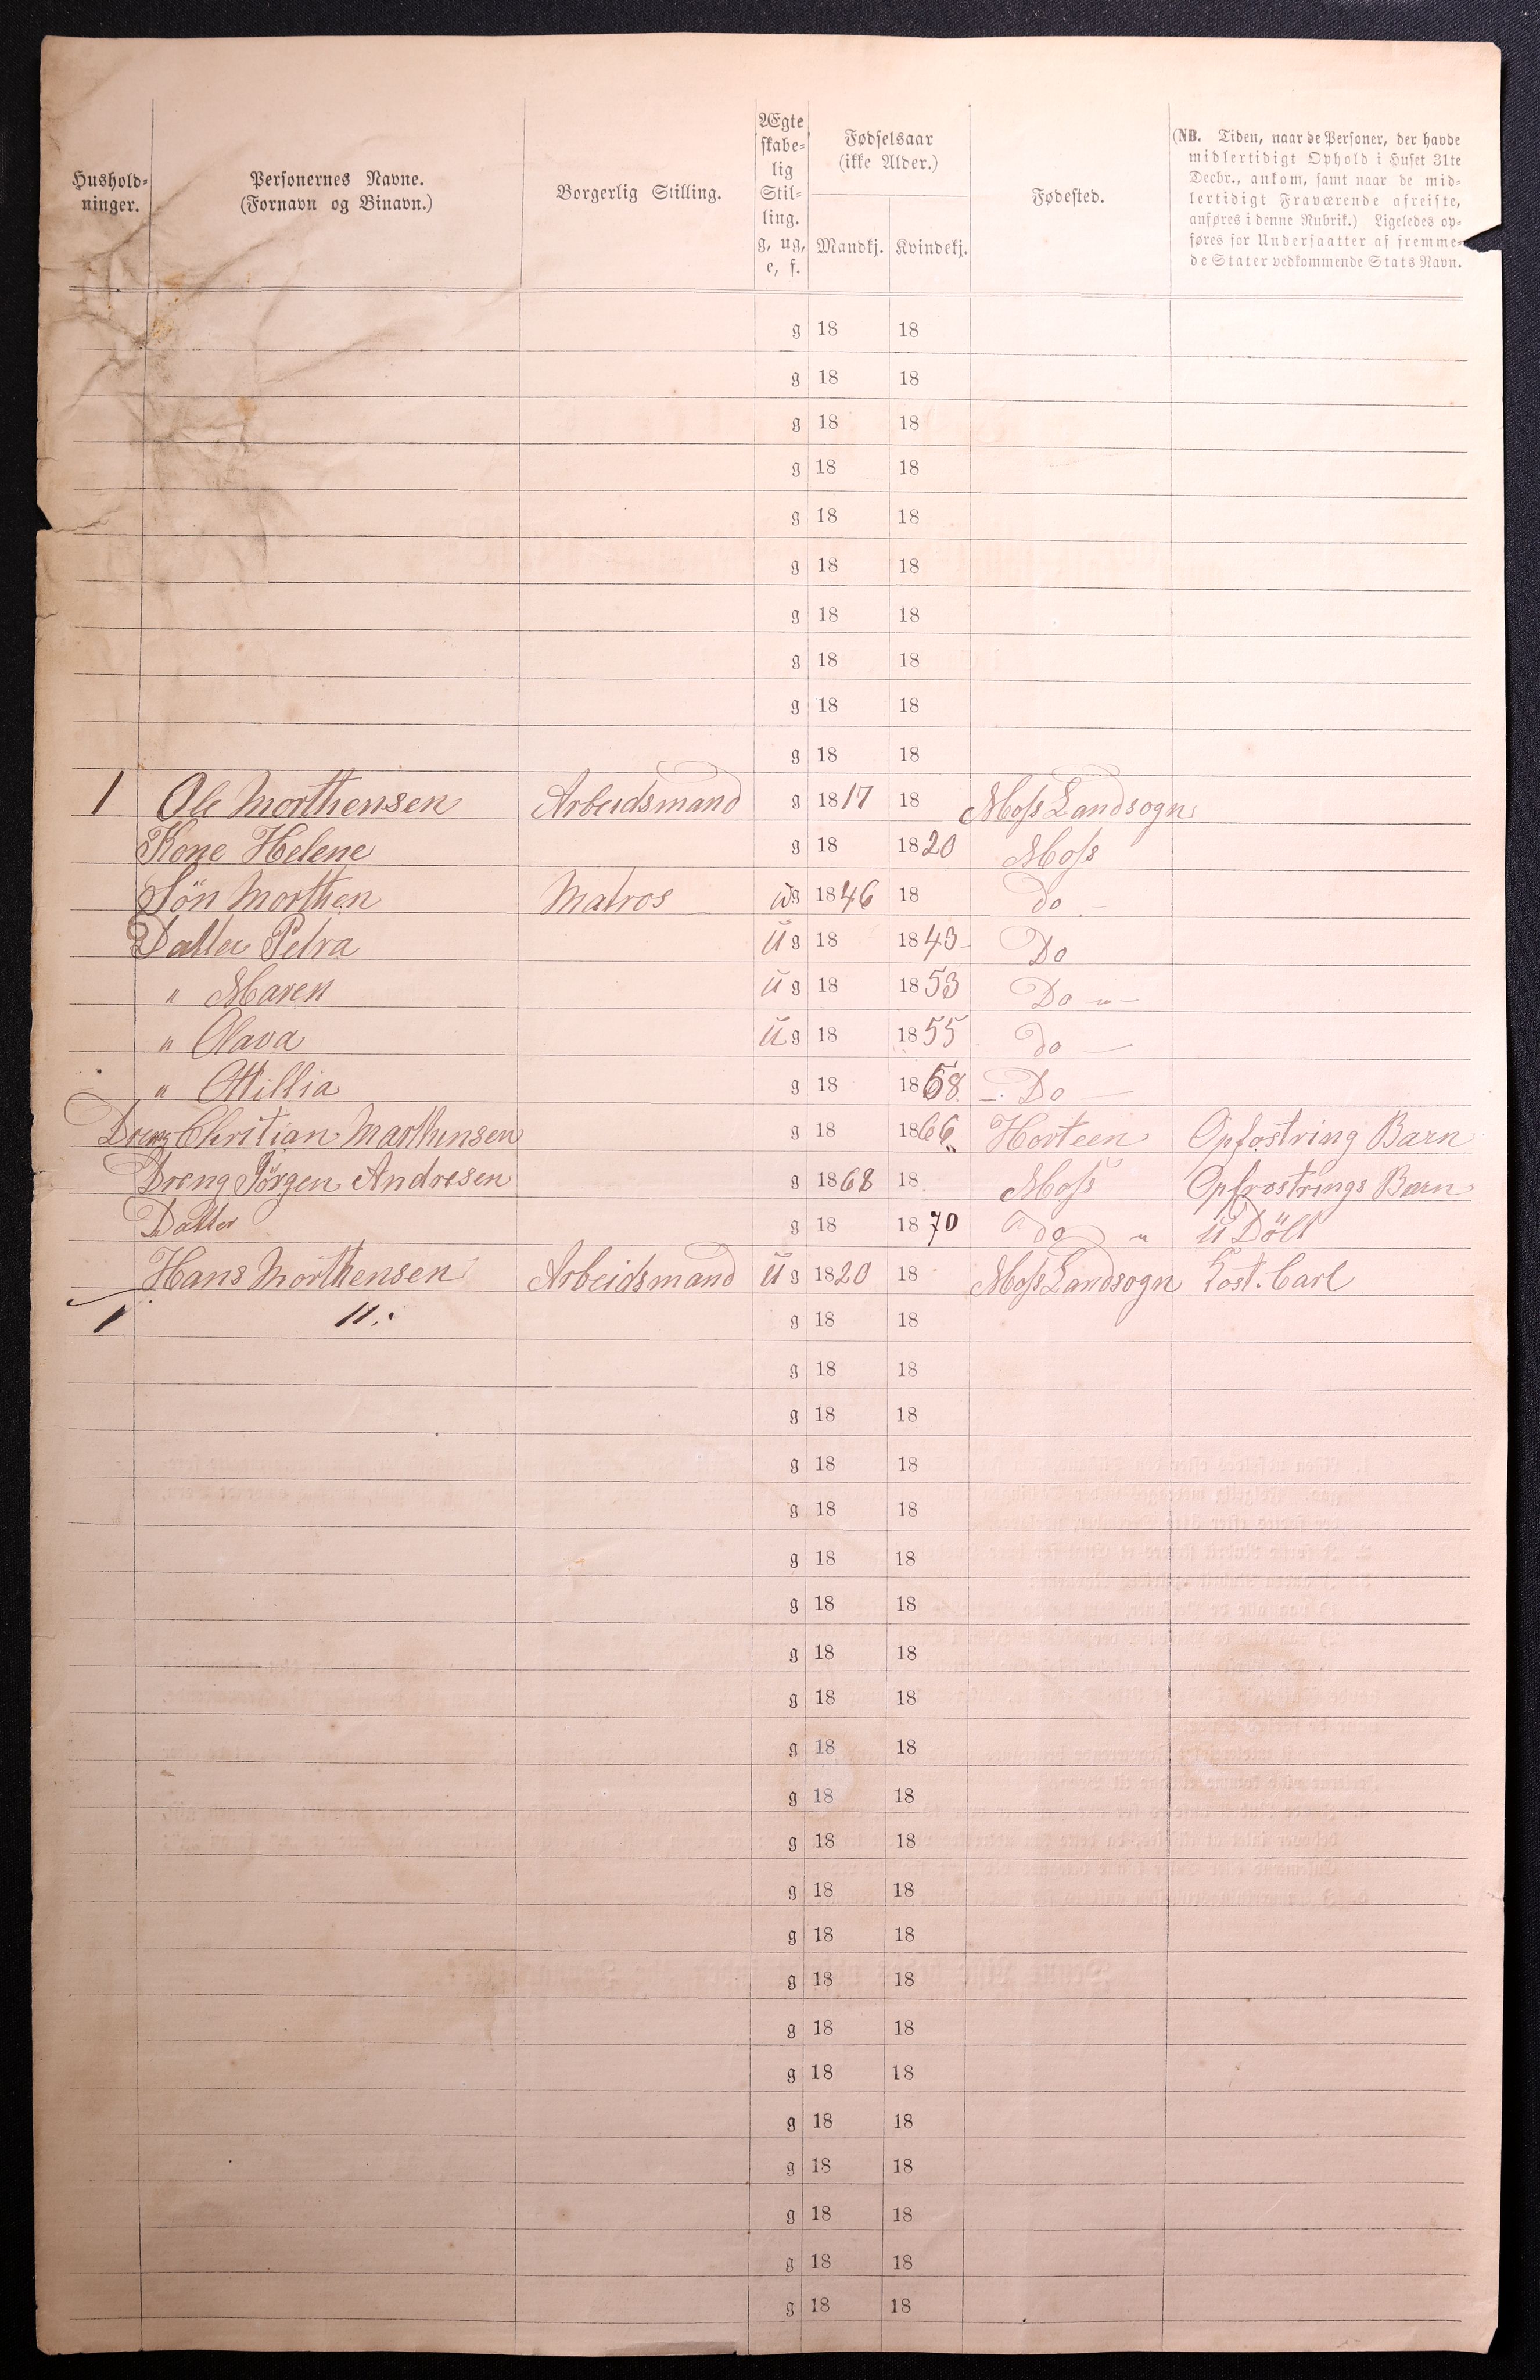 Hushold-
ninger.
Personernes Navne.
(Fornavn og Binavn.)
Borgerlig Stilling.
Ægte
skabe-
lig
Stil-
ling.
g, ug,
e, f.
Fødselsaar
(ikke Alder.)
Mandkj. Kvindekj.
Fødested.
(NB. Tiden, naar de Personer, der havde
midlertidigt Ophold i Huset 31te
Decbr., ankom, samt naar de mid-
lertidigt Fraværende afreiste,
anføres i denne Rubrik.) Ligeledes op-
føres for Undersaatter af fremme-
de Stater vedkommende Stats Navn.
g 18 18
g 18 18
g 18 18
g 18 18
g 18 18
g 18 18
g 18 18
g 18 18
g 18 18
g 18 18
1 Ole Morthensen Arbeidsmand g 1817 18 Moss Landsogn
Kone Helene g 18 1820 Moss
Sön Morthen Matros ug 1846 18 do -
Datter Petra ŭ g 18 1843 - Do
" Maren ŭ g 18 1853 Do - " -
" Olava ŭ g 18 1855 do -
" Ottillia g 18 1858 - Do -
Dreng Christian Marthinsen g 18 1866 Horteen Opfostring Barn
Dreng Jörgen Andresen g 1868 18 Moss Opfrostrings Barn
Datter g 18 1870 do " ŭ Döbt
Hans Morthensen Arbeidsmand ŭ g 1820 18 Moss Landsogn Lost. Carl
1 11.
g 18 18
g 18 18
g 18 18
g 18 18
g 18 18
g 18 18
g 18 18
g 18 18
g 18 18
g 18 18
g 18 18
g 18 18
g 18 18
g 18 18
g 18 18
g 18 18
g 18 18
g 18 18
g 18 18
g 18 18
g 18 18
g 18 18